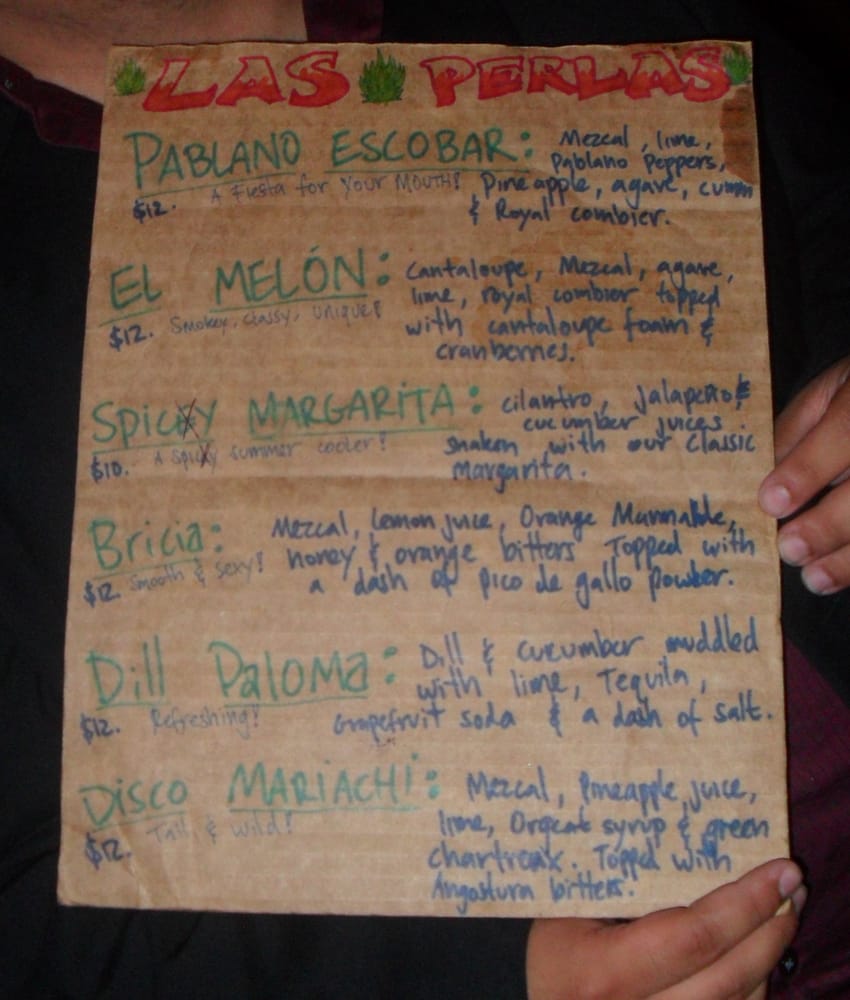 LAS PERLAS
PABLANO ESCOBAR: Mezcal, lime,
Pablano Peppers,
A Fiesta for Your MOUTH! Pineapple, agave, cumin
$12. & Royal combier.
EL MELÓN: Cantaloupe, Mezcal, agave,
lime, royal combier topped
$12. Smokey, classy, unique! with cantaloupe foam &
cranberries.
SPICY MARGARITA: cilantro, Jalapeño &
cucumber juices.
$10. A spicy summer cooler! shaken with our classic
margarita.
Bricia: Mezcal, Lemon juice, Orange Marmalde,
honey & orange bitters Topped with
$12. Smooth & sexy! a dash of pico de gallo powder.
Dill Paloma: Dill & cucumber muddled
with lime, Tequila,
$12. Refreshing! Grapefruit soda & a dash of salt.
DISCO MARIACHI: Mezcal, Pineapple juice,
$12. Tall & wild! lime, Orgeat syrup & green
chartreax. Topped with
Angostura bitters.